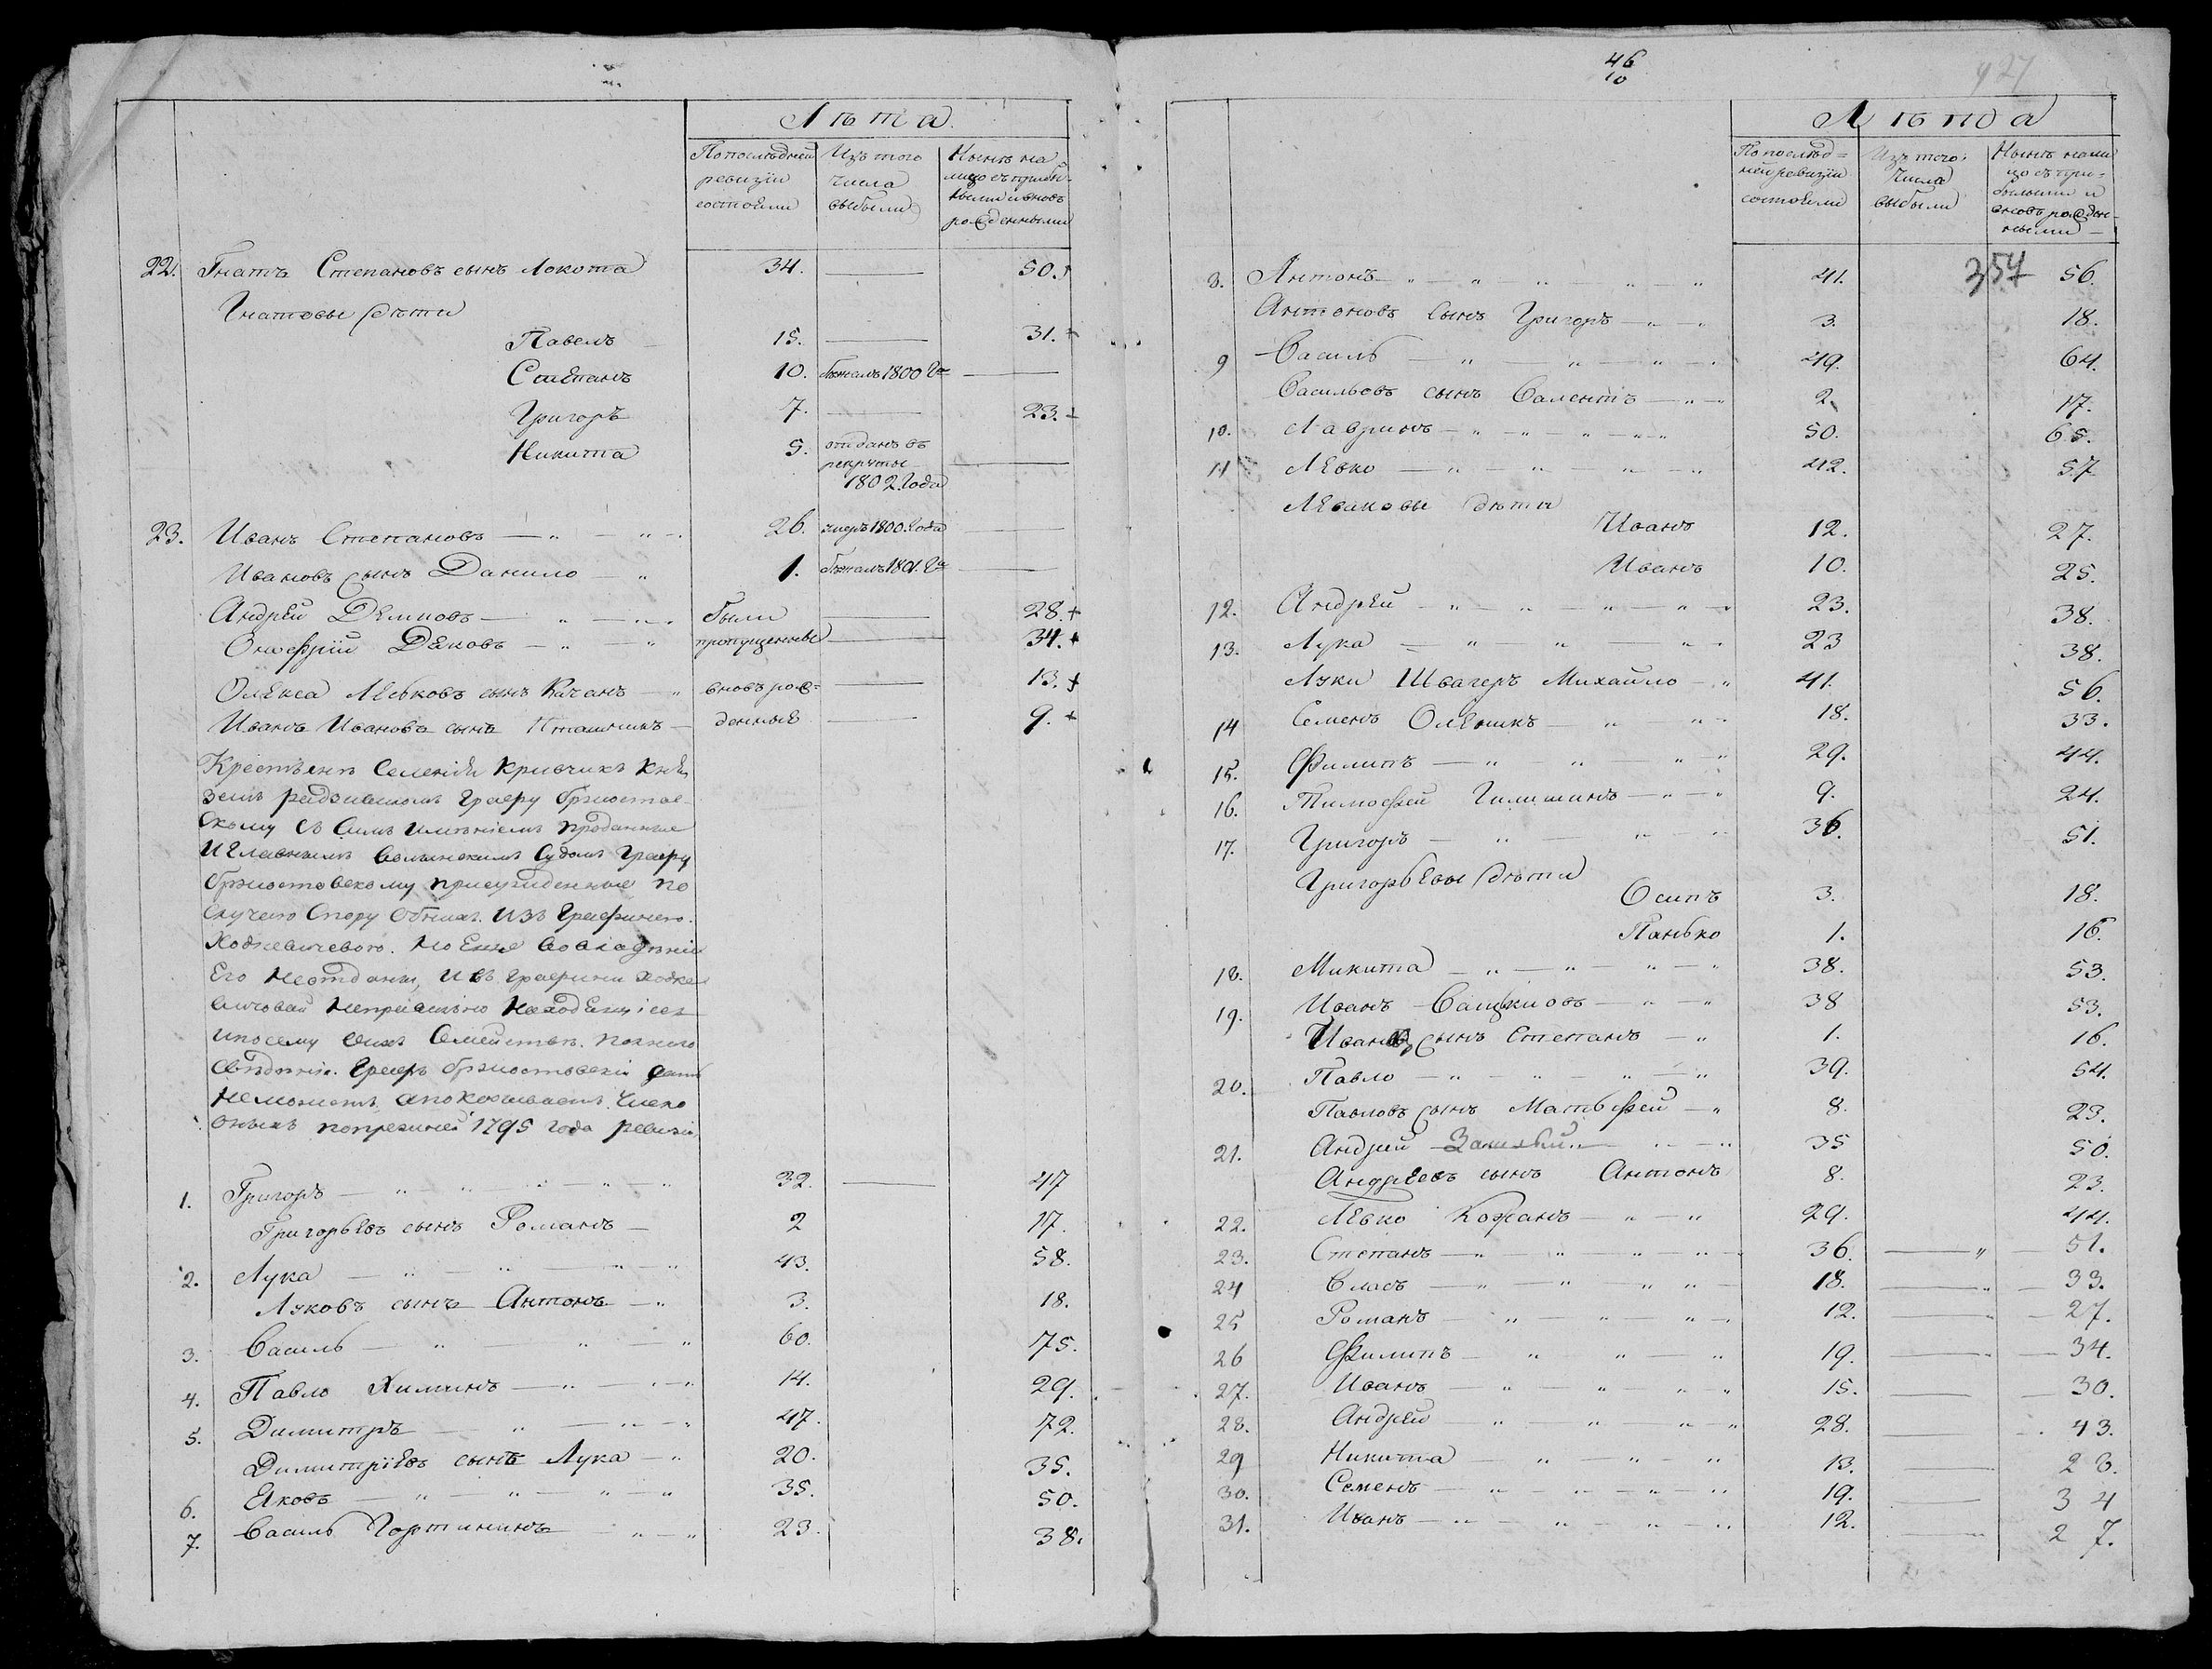 Лѣта
По последней ревизіи состояли
Изъ того числа выбыли
Нынѣ на лицо съ прибылыми и вновь рожденными
22. Гнатъ Степановъ сынъ Локота 34. — 50.
Гнатовы дѣти
Павелъ 15. — 31.
Степанъ 10. бѣжалъ 1800 Го —
Григоръ 7. — 23.
Никита 5. отданъ въ рекруты 1802 Года —
23. Иванъ Степановъ — „ — „ 26. умеръ 1800 Года —
Ивановъ сынъ Данило — „ 1. бѣжалъ 1801. Го —
Андрей Демковъ — „ — „ были — 28. +
Онофрій Дяковъ — „ — „ пропущенные — 34. +
Олекса Левковъ сынъ Качанъ — „ вновь рож= — 13. +
Иванъ Ивановъ сынъ Пташникъ — денные — 9. +
Крестьянъ Селенія Кривчикъ Кня
земъ Радзивиломъ Графу Бржостов
скому съ Симъ имѣніемъ проданные
и Главнымъ Волынскимъ Судомъ Графу
Бржостовскому присужденные по
случаю Спору Объ нихъ изъ Графинею
Ходкевичевою. Но Еще во владѣніи
Его не отданы, и въ Графини Ходке
вичовой неправильно находящіеся
и посему Семействъ. полного
Свѣдѣнія. Графъ Бржостовскій дать
не можетъ, а показываетъ число
оныхъ по прежней 1795 года ревизіи
1. Григоръ — „ — „ — „ 32. — 47
Григорьевъ сынъ Романъ — 2 17.
2. Лука — „ — „ — „ 43. 58.
Луковъ сынъ Антонъ — „ 3. 18.
3. Василь — „ — „ — „ 60. 75.
4. Павло Химинъ — „ — „ 14. 29.
5. Димитръ — „ — „ — „ 47. 72.
Димитріевъ сынъ Лука — „ 20. 35.
6. Яковъ — „ — „ — „ 35. 50.
7. Василь — „ — „ 23. 38.
46
10
927
Лѣта
По послѣд=ней ревизіи состояли
Изъ того числа выбыли
Нынѣ на лицо съ при=былыми и вновь рожден=ными
354
8. Антонъ — „ — „ — „ 41. 56.
Антоновъ Сынъ Григоръ — „ 3. 18.
9 Василь — „ — „ — „ 49. 64.
Васильовъ сынъ Валентъ — „ 2. 17.
10. Лавринъ — „ — „ — „ 50. 65.
11 Левко — „ — „ — „ 42. 57
Левковы дѣти
Иванъ 12. 27.
Иванъ 10. 25.
12. Андрей — „ — „ — „ 23. 38.
13. Лука — „ — „ — „ 23 38.
Луки Швагеръ Михайло — „ 41. 56
14 Семенъ Олейникъ — „ — „ 18. 33.
15. Филипъ — „ — „ — „ 29. 44.
16. Тимофей — „ — „ 9. 24.
17. Григоръ — „ — „ 36. 51.
Григорьевы дѣти
Осипъ 3. 18.
Панько 1. 16.
18. Микита — „ — „ — „ 38. 53.
19. Иванъ — „ — „ 38 53.
Ивановъ сынъ Степанъ — „ 1. 16.
20. Павло — „ — „ — „ 39. 54.
Павловъ сынъ Матвѣей — „ 8. 23.
21. Андрій — „ — „ 35 50.
Андреевъ сынъ Антонъ 8. 23.
22. Левко Кожанъ — „ — „ 29. 44.
23. Степанъ — „ — „ — „ 36. — „ — 51.
24 Власъ — „ — „ — „ 18. — „ — 33.
25 Романъ — „ — „ — „ 12. — „ — 27.
26 Филипъ — „ — „ — „ 19. — „ — 34.
27. Иванъ — „ — „ — „ 15. — 30.
28. Андрей — „ — „ — „ 28. — 43.
29 Никита — „ — „ — „ 13. — 28.
30. Семенъ — „ — „ — „ 19. — 34
31. Иванъ — „ — „ — „ 12. — 27.